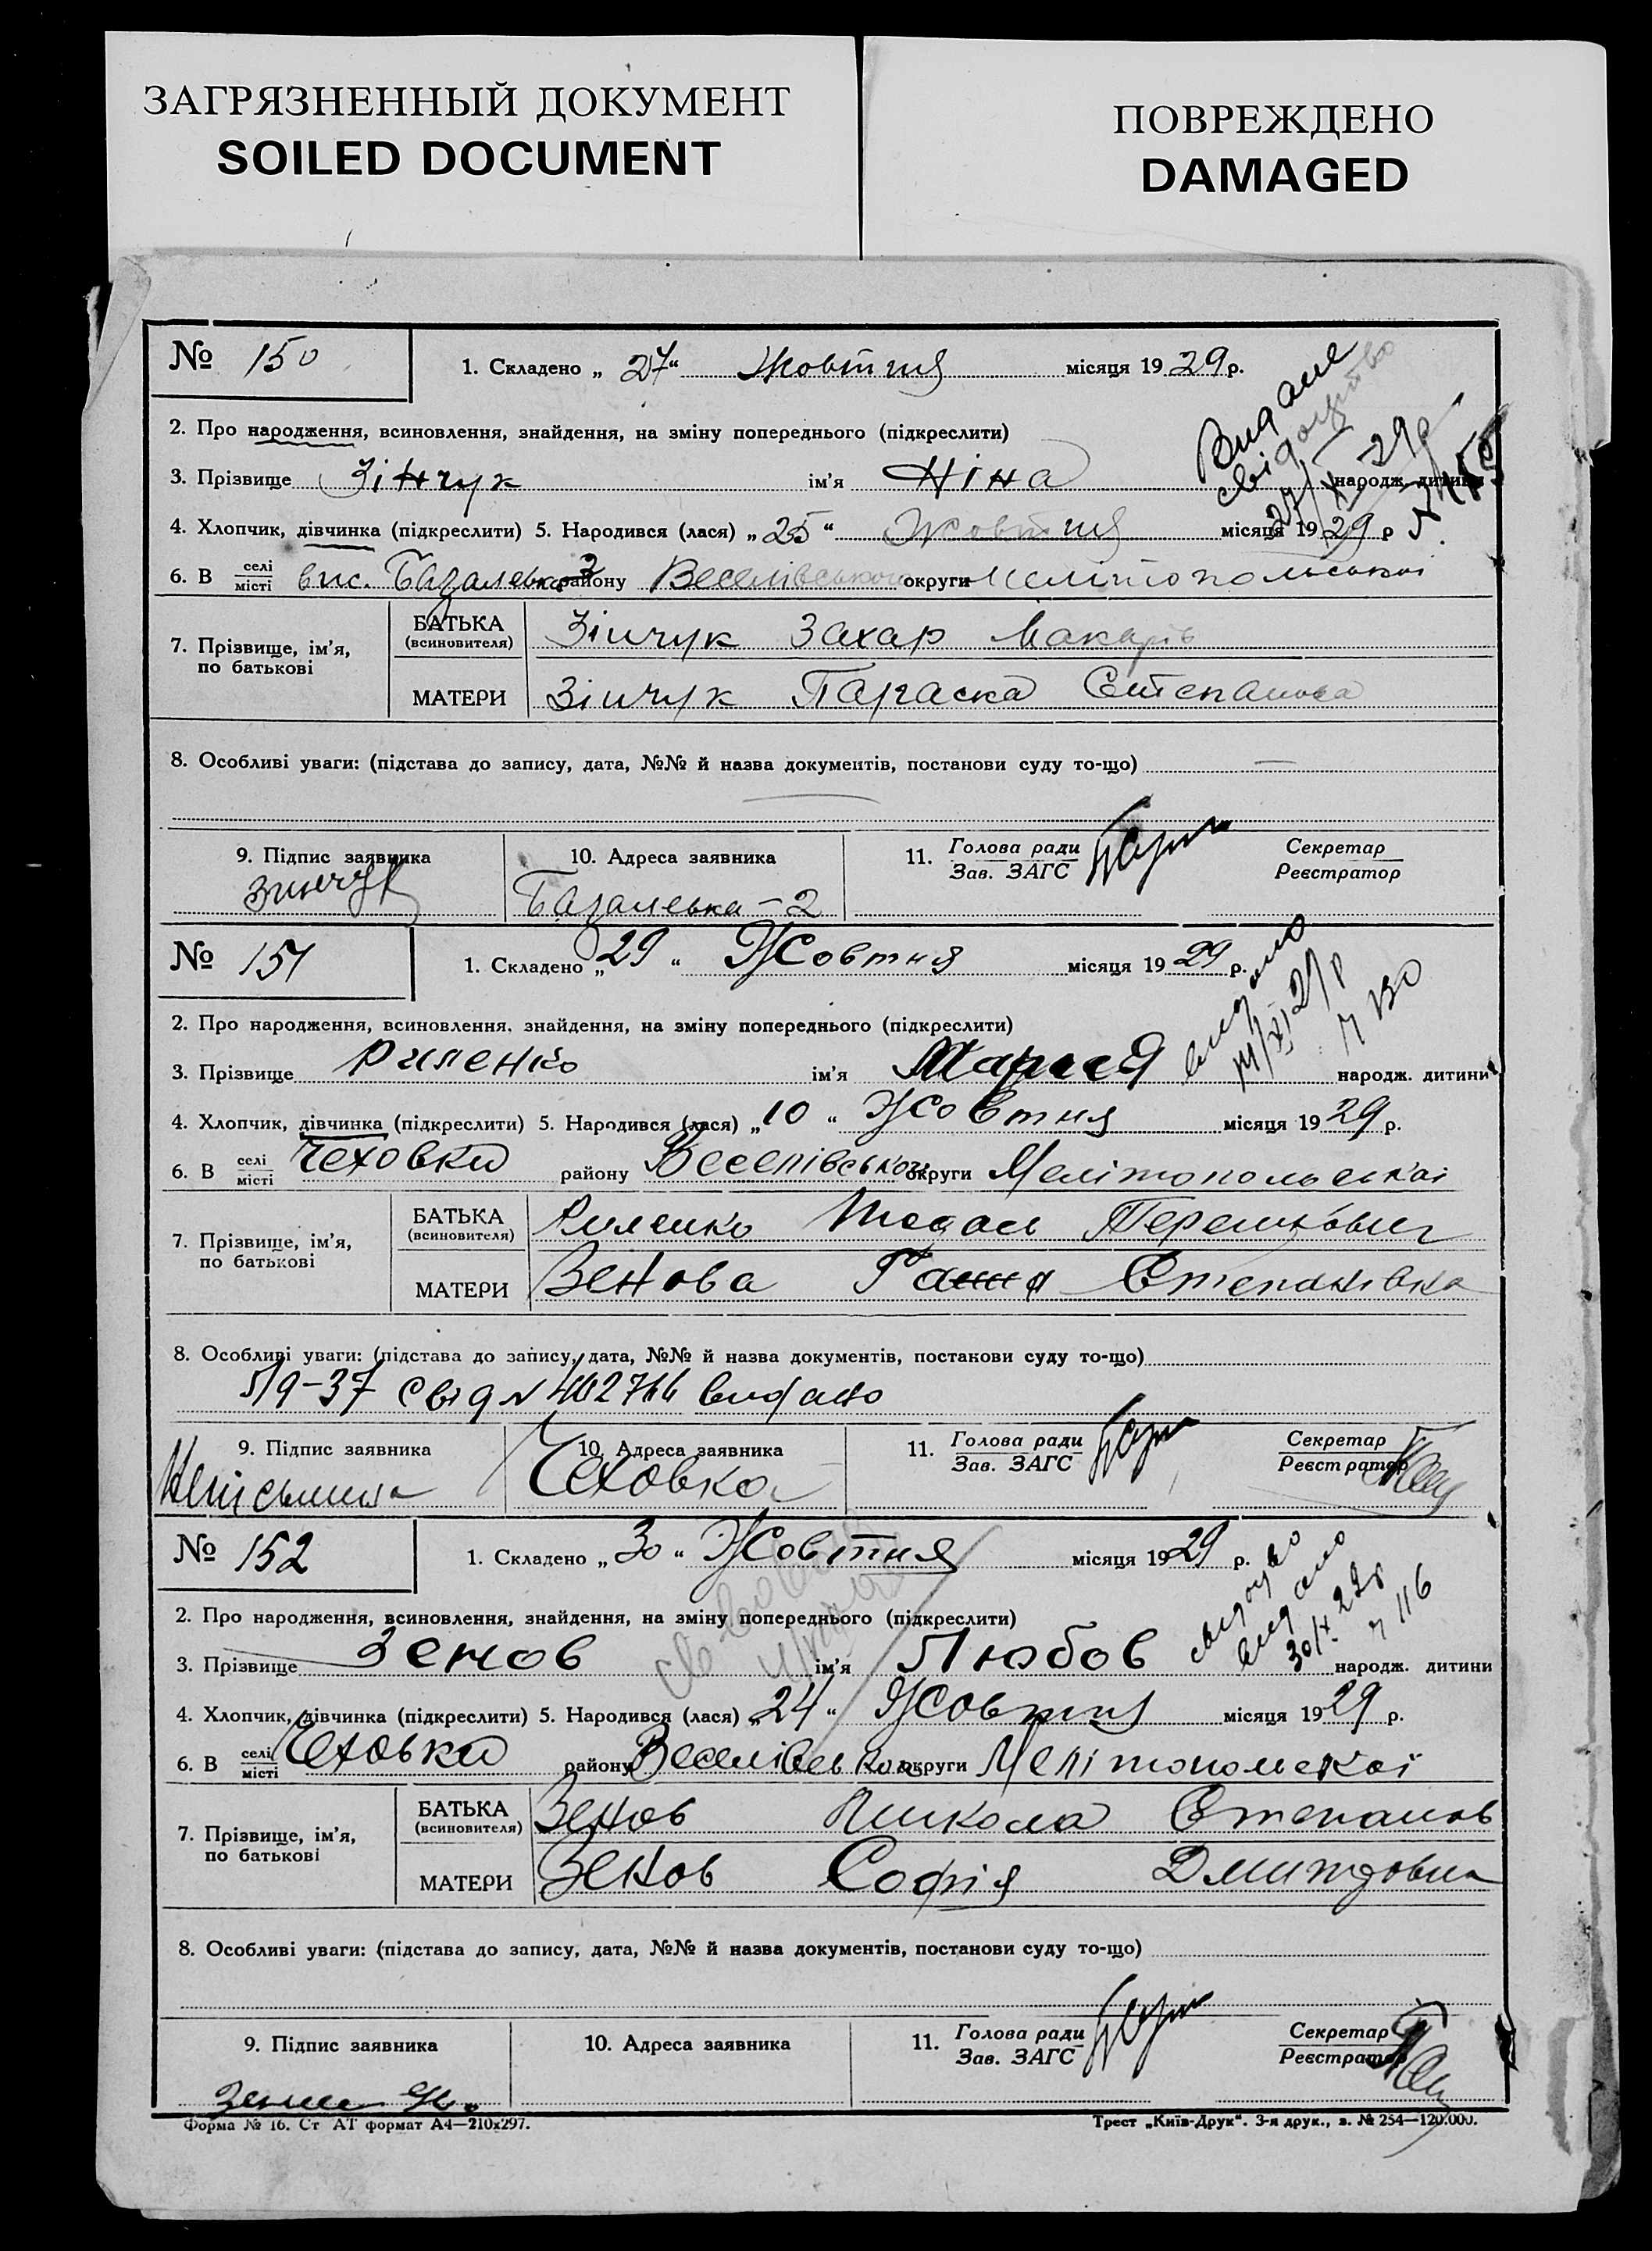 ЗАГРЯЗНЕННЫЙ ДОКУМЕНТ
SOILED DOCUMENT
ПОВРЕЖДЕНО
DAMAGED
№ 150
1. Складено „27“ Жовтня місяця 1929 р.
Видане
свідоцтво
27/X-29р
2. Про народження, всиновлення, знайдення, на зміну попереднього (підкреслити)
3. Прізвище Зінчук ім’я Ніна народж. дитини
4. Хлопчик, дівчинка (підкреслити) 5. Народився (лася) „25“ Жовтня місяця 1929 р
6. В селі місті району Веселівської округи Мелітопольської
7. Прізвище, ім’я, по батькові
БАТЬКА (всиновителя) Зінчук Захар Макарів
МАТЕРИ Зінчук Параска Степанова
8. Особливі уваги: (підстава до запису, дата, №№ й назва документів, постанови суду то-що) —
9. Підпис заявника Зинчук
10. Адреса заявника
11. Голова ради Зав. ЗАГС
Секретар Реєстратор
№ 151
1. Складено „29“ Жовтня місяця 1929 р.
видано
2. Про народження, всиновлення, знайдення, на зміну попереднього (підкреслити)
3. Прізвище Риленко ім’я Марія народж. дитини
4. Хлопчик, дівчинка (підкреслити) 5. Народився (лася) „10“ Жовтня місяця 1929 р.
6. В селі місті Чеховки району Веселівської округи Мелітопольської
7. Прізвище, ім’я, по батькові
БАТЬКА (всиновителя) Риленко
МАТЕРИ Зенова Ганна Степанівна
8. Особливі уваги: (підстава до запису, дата, №№ й назва документів, постанови суду то-що)
5/9-37 Свід N 402766 видано
9. Підпис заявника Неписьмена
10. Адреса заявника Чеховка
11. Голова ради Зав. ЗАГС
Секретар Реєстратор
№ 152
1. Складено „30“ Жовтня місяця 1929 р.
видано
116
2. Про народження, всиновлення, знайдення, на зміну попереднього (підкреслити)
3. Прізвище Зенов ім’я Любов народж. дитини
4. Хлопчик, дівчинка (підкреслити) 5. Народився (лася) „24“ Жовтня місяця 1929 р.
6. В селі місті Чеховки району Веселівської округи Мелітопольскої
7. Прізвище, ім’я, по батькові
БАТЬКА (всиновителя) Зенов Микола Степанов
МАТЕРИ Зенов Софія Дмитровна
8. Особливі уваги: (підстава до запису, дата, №№ й назва документів, постанови суду то-що)
9. Підпис заявника
10. Адреса заявника
11. Голова ради Зав. ЗАГС
Секретар Реєстратор
Форма № 16. Ст АТ формат А4—210х297.
Трест „Київ-Друк“. 3-я друк., з. № 254—120.000.